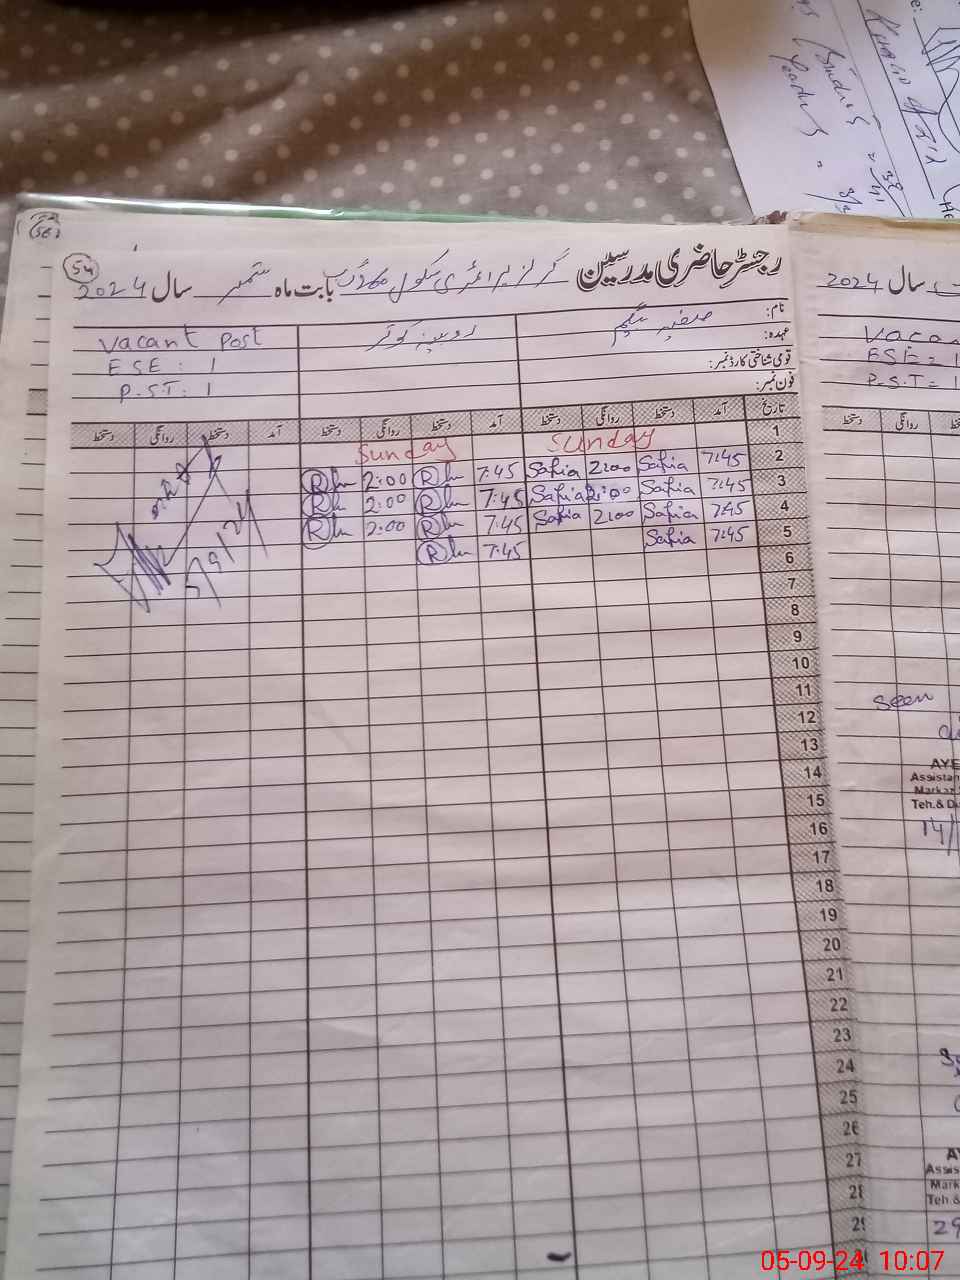 رجسٹر حاضری مدرسین گرلز پرائمری سکول 260 گ ب بابت ماہ ستمبر سال 2024
54
نام: صفیہ بیگم
روبینہ کوثر
Vacant Post
عہدہ:
ESE : 1
قومی شناختی کارڈ نمبر:
P.S.T: 1
فون نمبر:
تاریخ آمد دستخط روانگی دستخط آمد دستخط روانگی دستخط آمد دستخط روانگی دستخط
1 Sunday Sunday
2 7:45 Safia 2:00 Safia 7:45 2:00
3 7:45 Safia 2:00 Safia 7:45 2:00
4 7:45 Safia 2:00 Safia 7:45 2:00
5 7:45 Safia 7:45
5/9/24
6
7
8
9
10
11
12
13
14
15
16
17
18
19
20
21
22
23
24
25
26
27
28
29
سال 2024
ESE = 1
P.S.T = 1
دستخط روانگی
Seen
Teh.&
14/
Teh &
29
Students
05-09-24 10:07